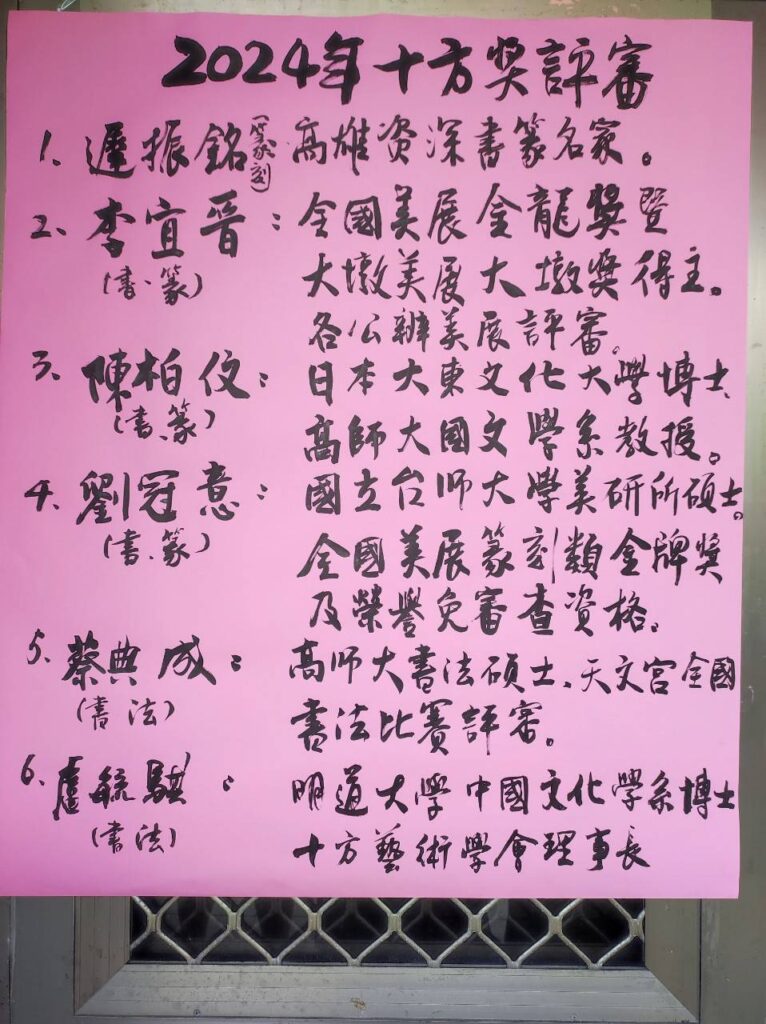 2024年十方奖評審
1、遲振銘(篆刻) 高雄资深書篆名家。
2、李宜晋：全國美展金龍獎暨
(書、篆) 大墩美展大墩獎得主。
各公辦美展評審。
3、陳柏伩：日本大東文化大學博士、
(書、篆) 高師大國文學系教授。
4、劉冠意：國立台师大學美研所碩士。
(書、篆) 全國美展篆刻類金牌獎
及榮譽免審查資格。
5、蔡典成：高师大書法碩士、天文宮全國
(書法) 書法比賽評審。
6、盧毓騏：明道大學中國文化學系博士
(書法) 十方藝術學會理事長